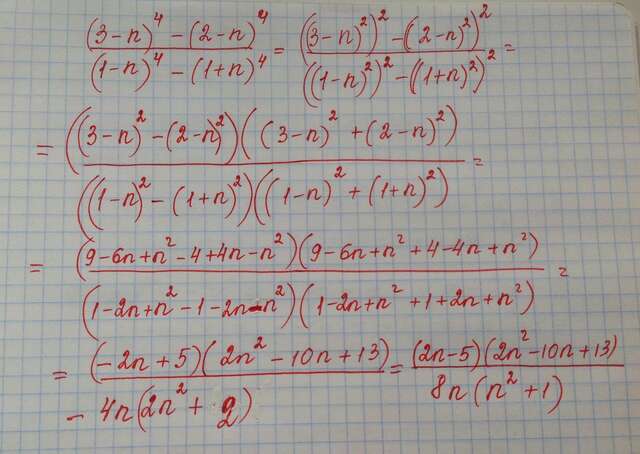 ((3-n)^4 - (2-n)^4) / ((1-n)^4 - (1+n)^4) = ((3-n)^2)^2 - (2-n)^2)^2 / ((1-n)^2)^2 - ((1+n)^2)^2 =
= ((3-n)^2 - (2-n)^2)((3-n)^2 + (2-n)^2) / ((1-n)^2 - (1+n)^2)((1-n)^2 + (1+n)^2) =
= (9-6n+n^2-4+4n-n^2)(9-6n+n^2+4-4n+n^2) / (1-2n+n^2-1-2n-n^2)(1-2n+n^2+1+2n+n^2) =
= (-2n+5)(2n^2-10n+13) / -4n(2n^2+2) = (2n-5)(2n^2-10n+13) / 8n(n^2+1)